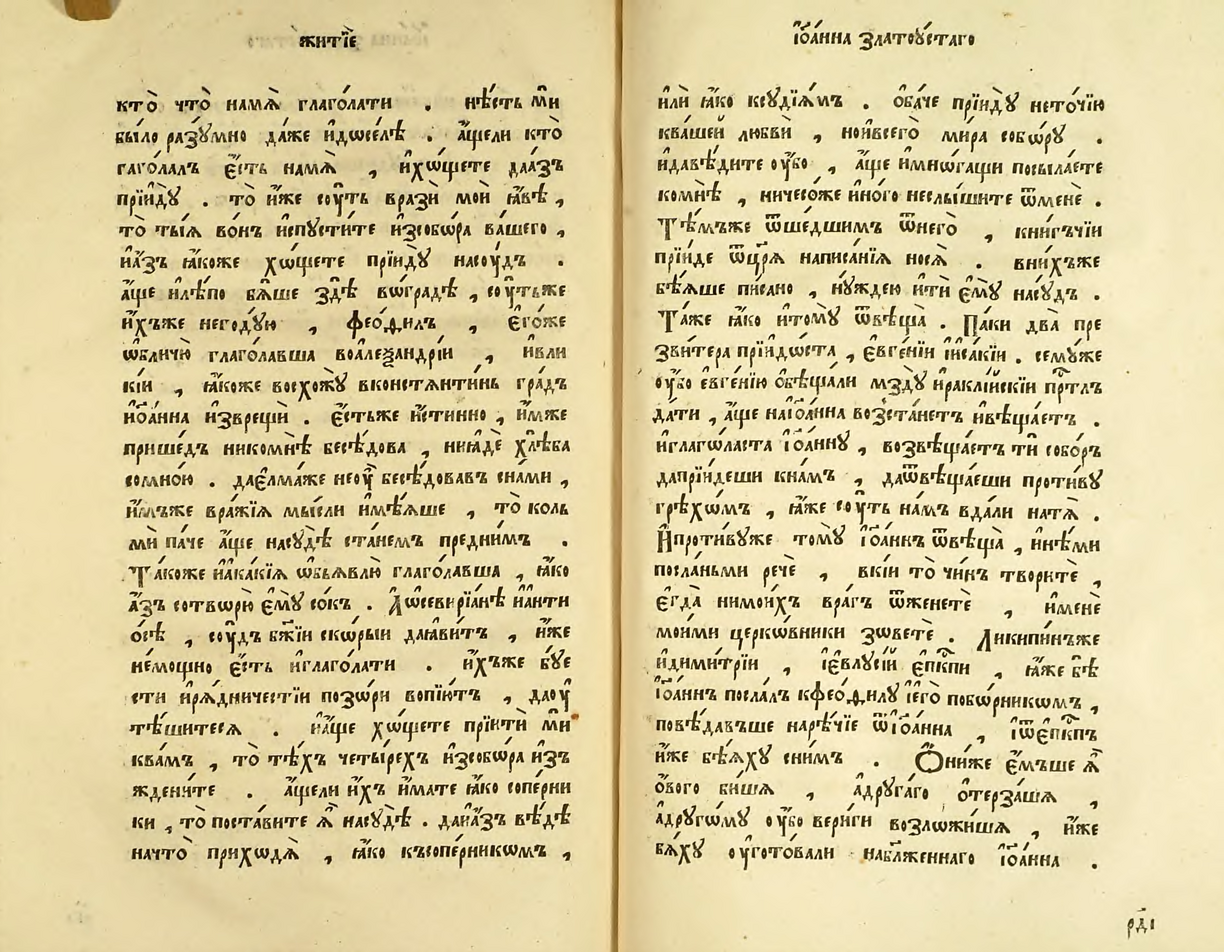 житїѐ
кто̀ что̀ намѧ̀ глаго́лати . нѣ́сть мѝ
было разꙋ́мно да́же и҆дѡселѣ̀ . а҆́щели кто̀
гаго́лалъ є҆́сть намѧ̀ , и҆хѡ́щете даа҆́зъ
прїидꙋ̀ . то̀ и҆́же сꙋ́ть вразѝ моѝ ꙗ҆́вѣ ,
то̀ тыѧ̀ во́нъ и҆спꙋсти́те и҆зсобѡ́ра ва́шего ,
и҆а҆́зъ ꙗ҆́коже хѡ́щете прїидꙋ̀ насꙋ́дъ .
а҆́ще и҆лѣ́по бѧ́ше здѣ̀ вѡгра́дѣ , сꙋ́тьже
и҆́хъже негодꙋ́ю , фео́филъ , є҆го́же
ѡ҆бличю̀ глаго́лавша воалеѯандрі́и , и҆вли
кі́и , ꙗ҆́коже восхожꙋ̀ вконстѧнти́нь гра́дъ
и҆ѡ҆а́нна и҆зврещѝ . є҆́стьже и҆́стинно , и҆́мже
прише́дъ никомнѣ̀ бесѣ́дова , ниꙗдѐ хлѣ́ба
сомно́ю . дає҆лма́же неоу҆̀ бесѣ́довавъ сна́ми ,
и҆́мъже вра́жїѧ мы́сли и҆мѣ́ѧше , то̀ коль
мѝ па́че а҆́ще насꙋ́дѣ ста́немъ предни́мъ .
Та́коже и҆ака́кїѧ ѡ҆бьѧвлю̀ глаго́лавша , ꙗ҆́ко
а҆́зъ сотвѡрю̀ є҆мꙋ̀ со́къ . Дѡсевирїа́нѣ и҆а҆нти
о́сѣ , сꙋ́дъ бж҃їи скѡ́рыи даꙗ҆ви́тъ , и҆́же
не́мощно є҆́сть и҆глаго́лати . и҆́хъже бꙋе
сти и҆рѧ́дничестїи позѡ́ри вопїю́тъ , даоу҆
тѣ́шитесѧ . и҆а҆́ще хѡ́щете прїитѝ мѝ
ква́мъ , то̀ тѣ́хъ четы́рехъ и҆зсобѡ́ра и҆зъ
ждени́те . а҆́щели и҆́хъ и҆́мате ꙗ҆́ко соперни
ки , то̀ поста́вите ѧ҆̀ насꙋ́дѣ . даиа҆́зъ вѣ́дѣ
начто̀ прихѡдѧ̀ , ꙗ҆́ко късопе́рникѡмъ ,
і҆ѡа́нна златоꙋ́стаго
и҆лѝ ꙗ҆́ко ксꙋдїѧ́мъ . ѻ҆ба́че прїидꙋ̀ нето́чїю
ква́шей любвѝ , нои҆всего̀ ми́ра собѡ́рꙋ .
и҆давѣ́дите оу҆́бо , а҆́ще и҆мнѡ́гащи посыла́ете
комнѣ̀ , ничесо́же и҆но́го неслы́шите ѿменѐ .
Тѣ́мъже ѿше́дшимъ ѿнего̀ , книгъчі́и
прїи́де ѿцр҃ѧ̀ написа́нїѧ носѧ̀ . вни́хъже
бѣ́ѧше пи́сано , нꙋ́ждею и҆тѝ є҆мꙋ̀ насꙋ́дъ .
Та́же ꙗ҆́ко и҆томꙋ̀ ѿвѣ́ща . Па́ки два̀ пре
зви́тера прїидѡ́ста , є҆вге́нїи і҆иса́кїи . семꙋ́же
оу҆́бо є҆вге́нїю ѻ҆бѣща́ли мздꙋ̀ и҆раклі́искїи прⷭ҇тлъ
да́ти , а҆́ще наі҆ѡа́нна возста́нетъ и҆вѣща́етъ .
и҆глагѡ́ласта і҆ѡа́ннꙋ , возвѣща́етъ тѝ собо́ръ
дапрїи́деши кна́мъ , даѿвѣща́еши проти́вꙋ
грѣхѡ́мъ , ꙗ҆́же сꙋ́ть на́мъ вда́ли натѧ̀ .
И҆проти́вꙋже томꙋ̀ і҆ѡа́ннъ ѿвѣща̀ , и҆нѣ́ми
посла́ньми речѐ , вкі́и то̀ чи́нъ творитѐ ,
є҆гда̀ нимои́хъ вра́гъ ѿженетѐ , и҆менѐ
мои́ми церкѡ́вники зѡветѐ . Ликипи́нъже
и҆дими́трїи , і҆є҆влꙋ́сїй є҆пⷭ҇кпи , ꙗ҆́же бѣ̀
і҆ѡа́ннъ посла́лъ кфео́филꙋ і҆є҆гѡ̀ побѡ́рникѡмъ ,
повѣ́давъше нарѣ́чїе ѿі҆ѡа́нна , і҆ѿє҆пⷭ҇кпъ
и҆́же бѣ́ѧхꙋ сни́мъ . Ѻ҆ни́же є҆́мъше ѧ҆̀
ѻ҆́вого би́шѧ , а҆дрꙋга́го ѻ҆терза́шѧ ,
а҆дрꙋгѡ́мꙋ оу҆́бо вери́ги возлѡжи́шѧ , и҆́же
бѧ́хꙋ оу҆гото́вали набл҃же́ннаго і҆ѡа́нна .
рд҃і